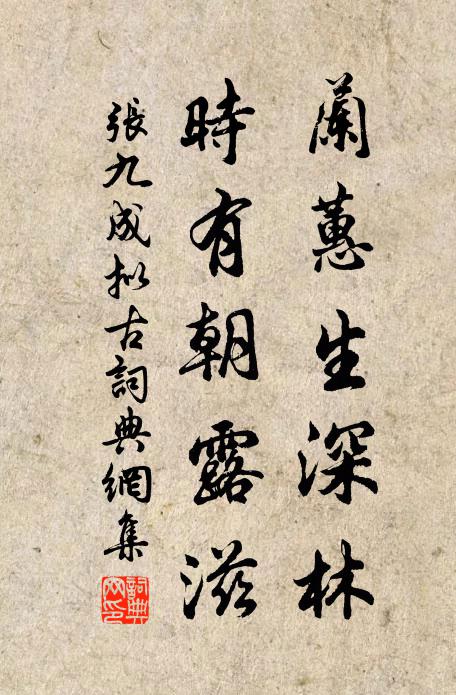 蘭蕙生深林
時有朝露滋
張九成拟古詞典網集
詞典
网印